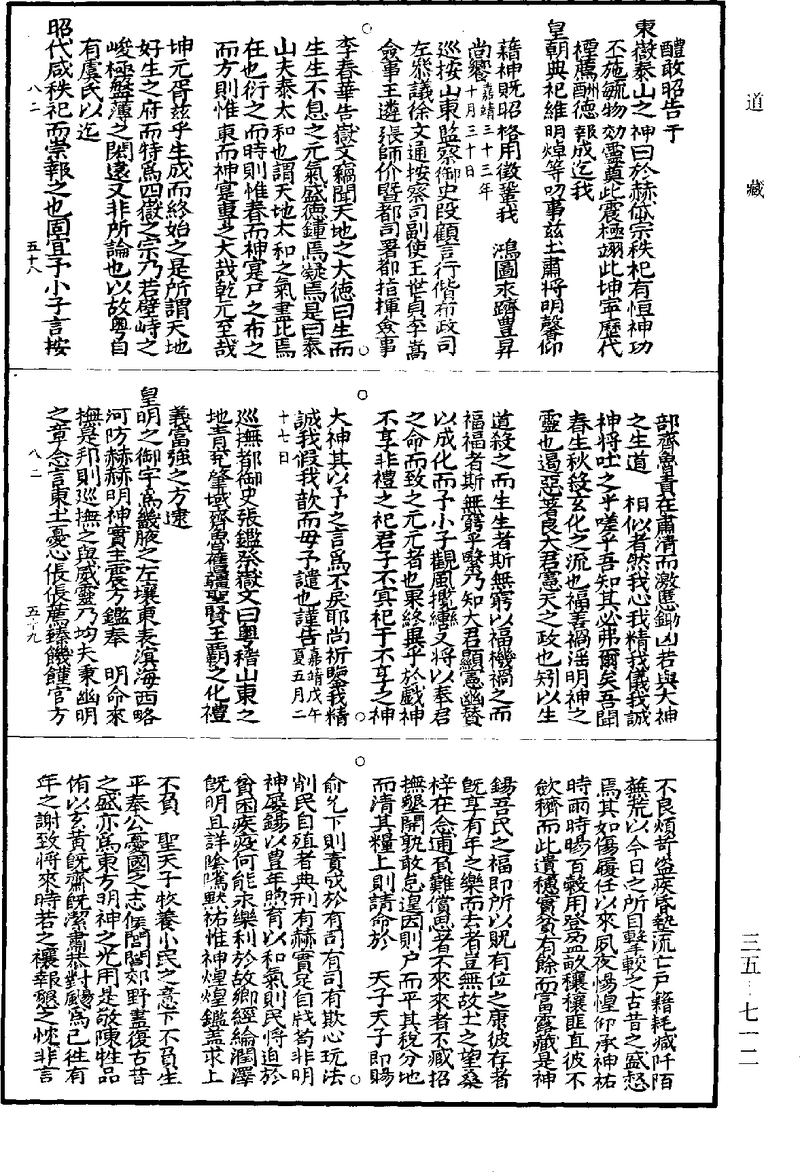 道藏
醴敢昭告于
東嶽泰山之神曰於赫岱宗秩祀有恒神功
丕施毓物効靈奠此震極翊此坤寧歷代
禋薦酬德報成迄我
皇朝典祀維明焯等叨事茲土肅將明馨仰
藉神既昭格用徵鞏我 鴻圖永躋豊昇
尚饗嘉靖三十三年十月三十日
巡按山東監察御史段顧言行偕布政司
左叅議徐文通按察司副使王世貞李嵩
僉事王遴張師价暨都司署都指揮僉事
李春華告嶽文竊聞天地之大德曰生而
生生不息之元氣盛德鍾焉凝焉是曰泰
山夫泰太和也謂天地太和之氣盡此焉
在也衍之而時則惟春而神寔尸之布之
而方則惟東而神寔專之大哉乾元至哉
坤元胥茲乎生成而終始之是所謂天地
好生之府而特爲四嶽之宗乃若壁峙之
峻極盤薄之閎遠又非所論也以故粤自
有虞氏以迄
昭代咸秩祀而崇報之也固宜予小子言按
八二
五十八
部齊魯責在肅清而激慝鋤凶若與大神
之生道 相似者然我心我精我儀我誠
神將吐之乎嗟乎吾知其必弗爾矣吾聞
春生秋殺玄化之流也福善禍淫明神之
靈也遏惡著良大君憲天之政也矧以生
道殺之而生生者斯無窮以福機禍之而
福福者斯無窮乎繄乃知大君顯憲幽贊
以成化而予小子觀風攬轡又將以奉君
之命而致之元元者也果終畢乎於戲神
不享非禮之祀君子不寘祀于不享之神
大神其以予之言爲不戾耶尚祈鑒我精
誠我假我歆而毋予譴也謹告嘉靖戊午夏五月二
十七日
巡撫都御史張鑑祭嶽文曰粤稽山東之
地青兗肇域齊魯舊疆聖賢王霸之化禮
義富強之方逮
皇明之御宇爲畿腋之左壤東表濱海西略
河防赫赫明神實主震方鑑奉 明命來
撫是邦則巡撫之與威靈乃均夫秉幽明
之章念言東土憂心倀倀薦臻饑饉官方
八二
五十九
不良煩苛煼疾昏墊流亡戶籍耗減阡陌
蕪荒以今日之所目擊較之古昔之盛愁
焉其如傷履任以來夙夜惕惶仰承神祐
時雨時暘百穀用登盈畝穰穰匪直彼不
歛穧而此遺穗實貧有餘而富露藏是神
錫吾民之福即所以貺有位之康彼存者
旣享有年之樂而去者豈無故土之望桑
梓在念逋負難償思者不來來者不臧招
撫墾開孰敢怠遑因則户而平其稅分地
而清其糧上則請命於 天子天子即賜
俞允下則責成於有司有司有欺心玩法
削民自殖者典刑有赫實足自戕曷非明
神屢錫以豊年煦育以和氣則民將迫於
貧困疾疫何能永樂利於故鄉經綸潤澤
旣明且詳陰隲默祐惟神煌煌鑑蓋求上
不負 聖天子牧養小民之意下不負生
平奉公憂國之志俟閭閻郊野盡復古昔
之盛亦爲東方明神之光用是敬陳牲品
侑以玄黃旣齋旣潔肅恭對颺爲已徃有
年之謝致將來時若之禳報慇之忱非言
三五—七一二